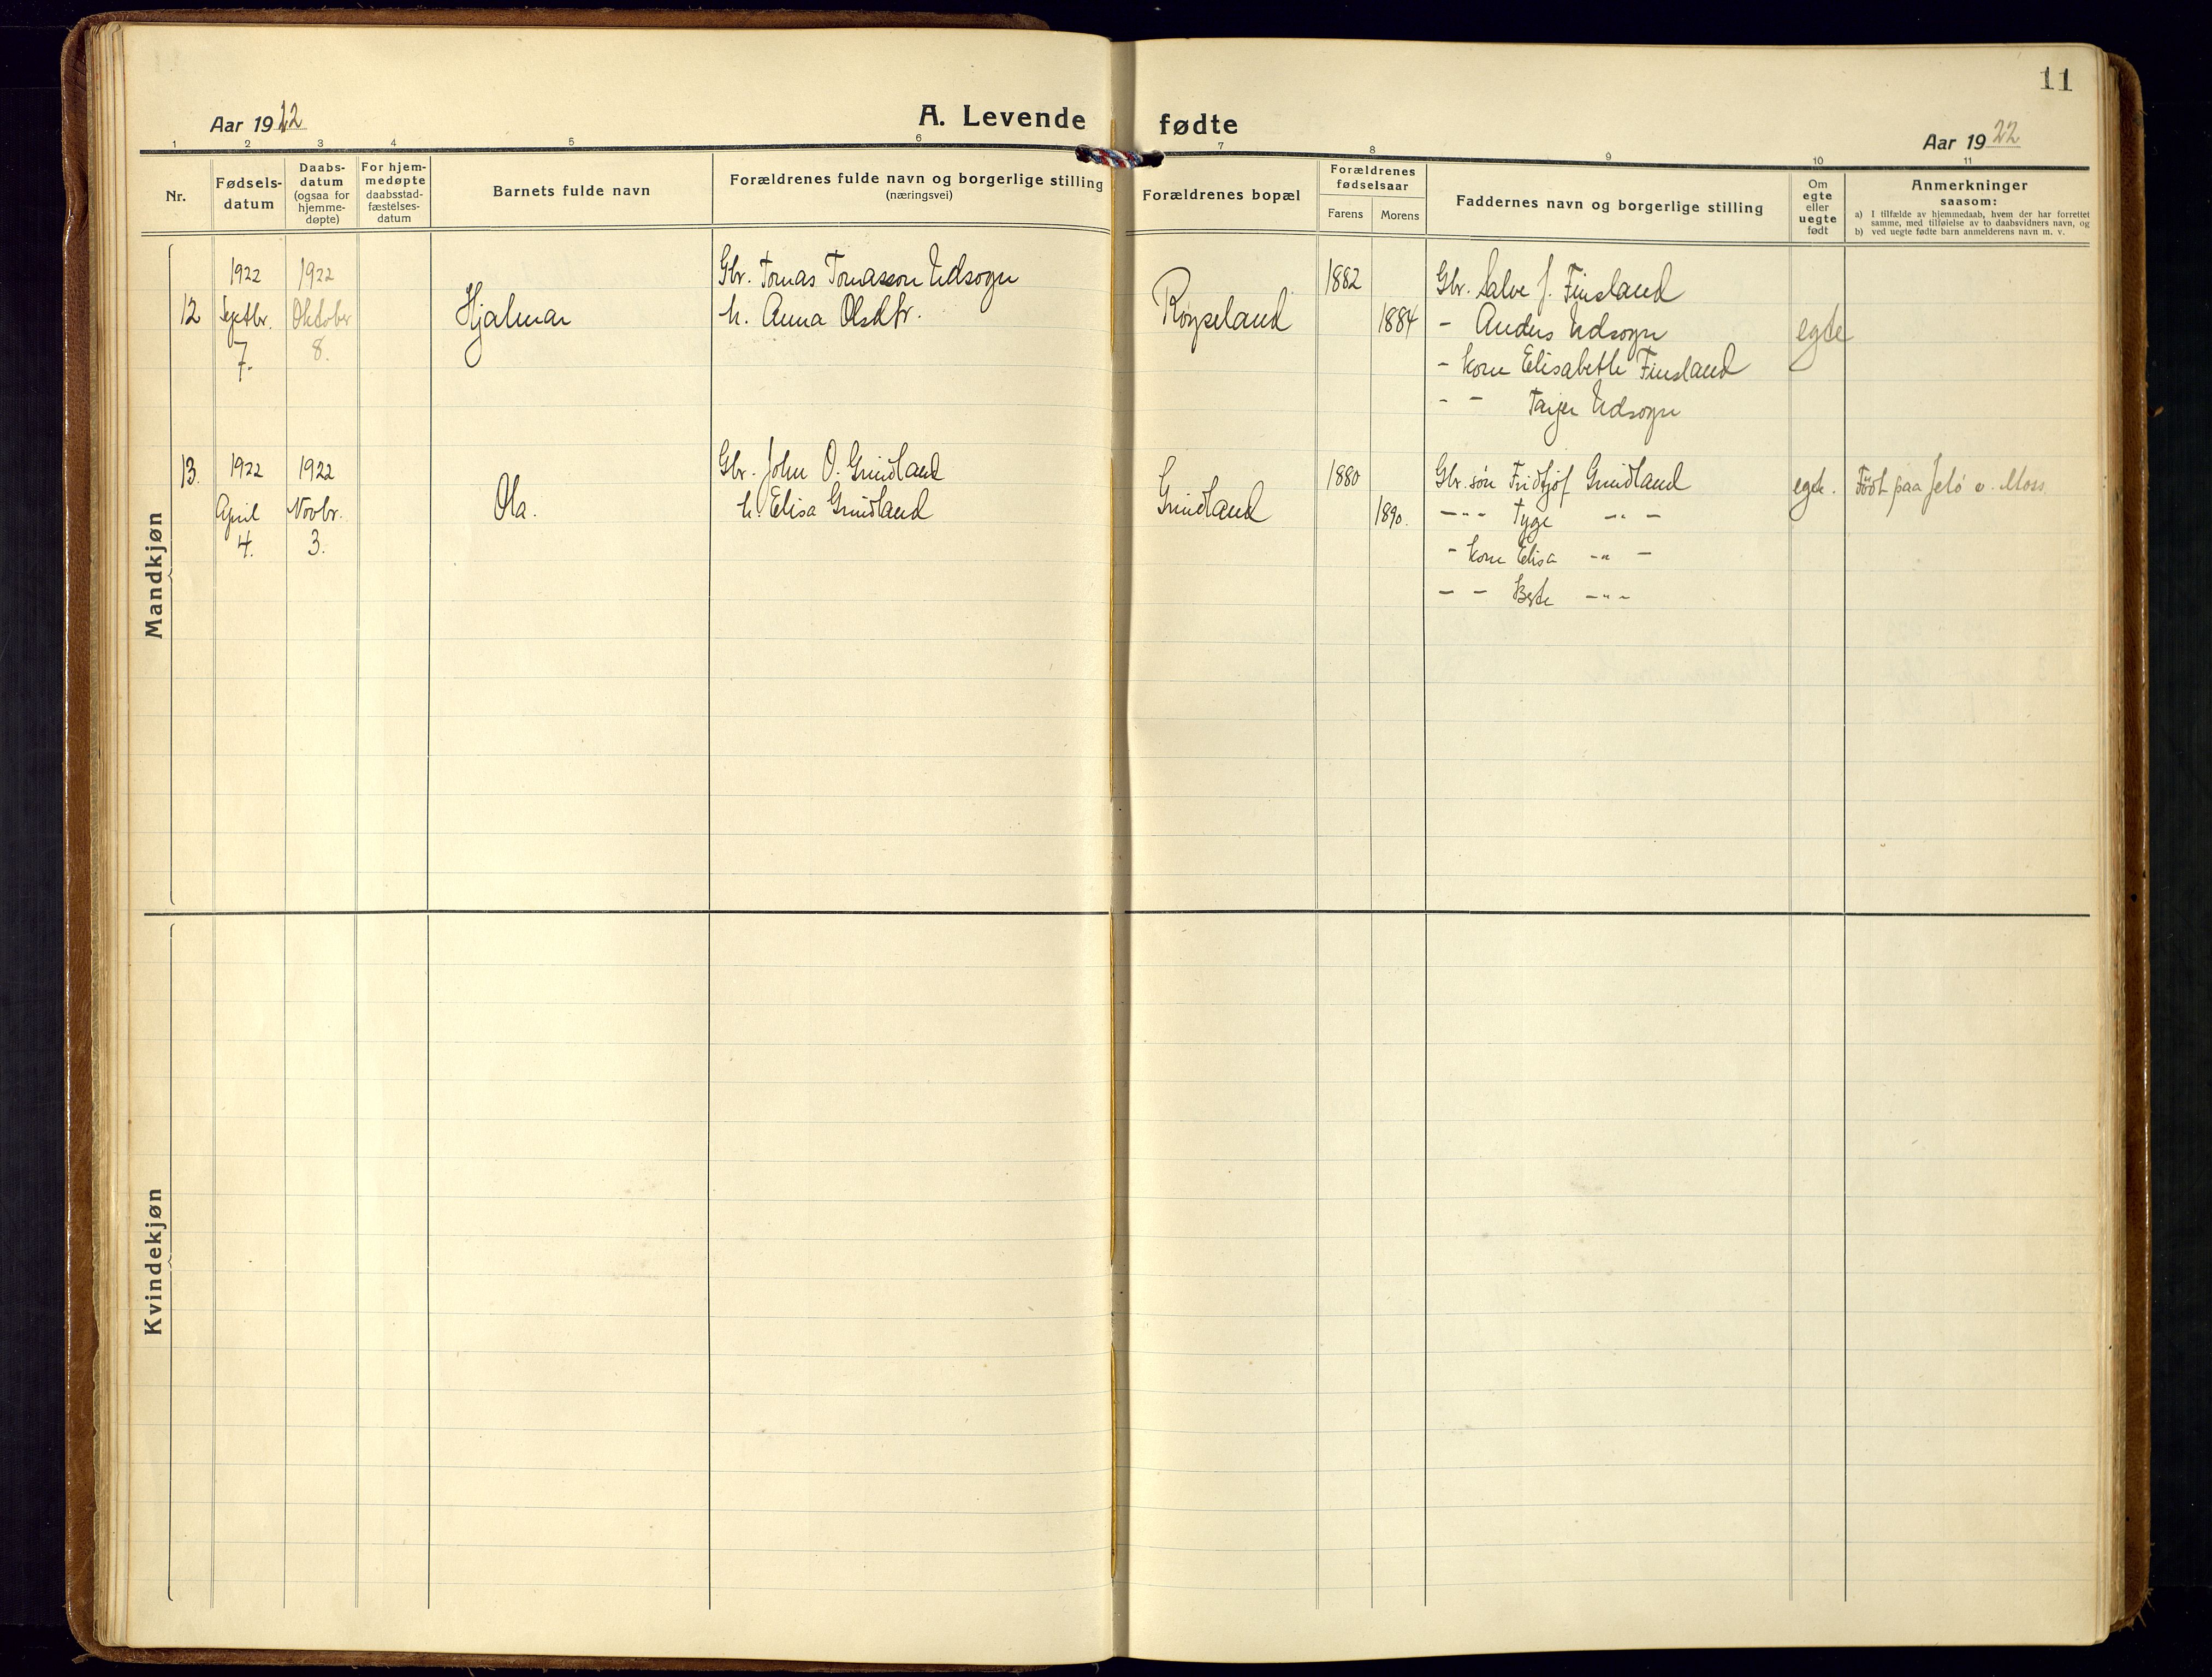 11
Aar 1922
A. Levende fødte
Aar 1922
1 2 3 4 5 6 7 8 9 10 11
Nr.
Fødsels-
datum
Daabs-
datum
(ogsaa for
hjemme-
døpte)
For hjem-
medøpte
daabsstad-
fæstelses-
datum
Barnets fulde navn
Forældrenes fulde navn og borgerlige stilling
(næringsvei)
Forældrenes bopæl
Forældrenes
fødselsaar
Farens Morens
Faddernes navn og borgerlige stilling
Om
egte
eller
uegte
født
Anmerkninger
saasom:
a) I tilfælde av hjemmedaab, hvem der har forrettet
samme, med tilføielse av to daabsvidners navn, og
b) ved uegte fødte barn anmelderens navn m. v.
Mandkjøn
12
1922
Septbr.
7.
1922
Oktober
8.
Hjalmar
Gbr. Tomas Tomasson Udsogn
h. Anna Olsdtr.
Røyseland
1882
1884
Gbr. Salve J. Finsland
- Anders Udsogn
- kone Elisabeth Finsland
- - Udsogn
egte
13.
1922
April
4.
1922
Novbr.
3.
Ola.
Gbr. John O. Grindland
h. Elisa Grindland
Grindland
1880
1890.
Gbr. søn Fridtjof Grindland
- " - Tyge - " -
- kone Elisa - " -
- - - " -
egte.
Født paa Jelø v. Moss.
Kvindekjøn